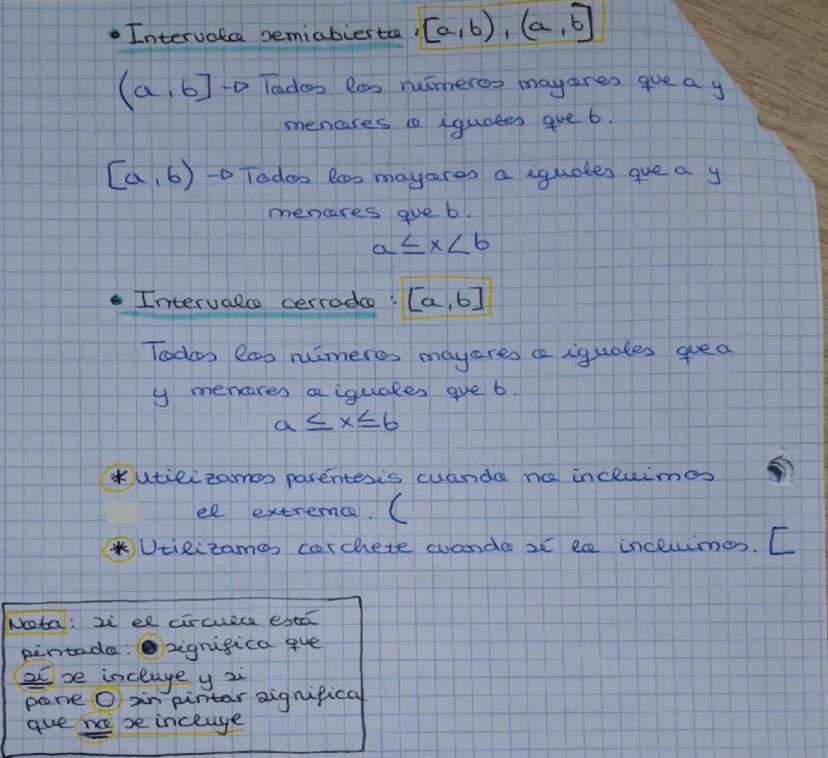 • Intervalo semiabierto: [a,b), (a,b]
(a,b] → Todos los números mayores que a y
menores o iguales que b.
[a,b) → Todos los mayores o iguales que a y
menores que b.
a ≤ x < b
• Intervalo cerrado: [a,b]
Todos los números mayores o iguales que a
y menores o iguales que b.
a ≤ x ≤ b
* Utilizamos paréntesis cuando no incluimos
el extremo. (
* Utilizamos corchete cuando sí lo incluimos. [
Nota: si el círculo está
pintado: ● significa que
sí se incluye y si
pone ○ sin pintar significa
que no se incluye